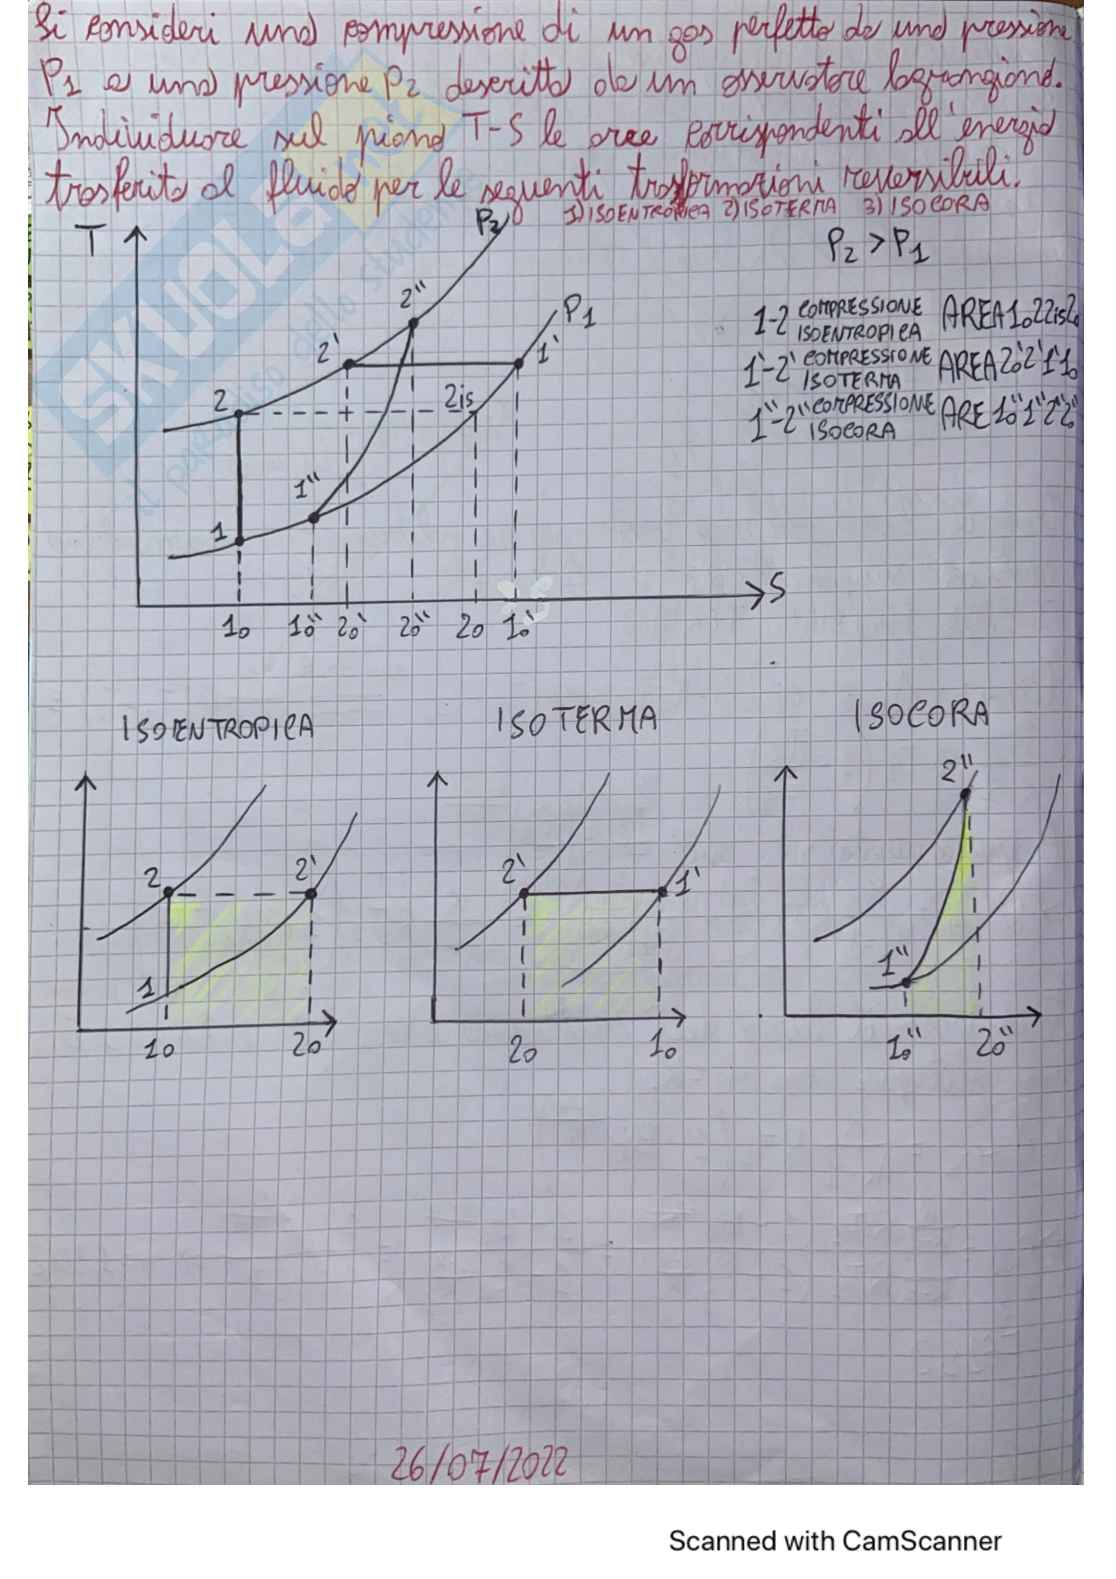 Si consideri una compressione di un gas perfetto da una pressione
P1 a una pressione P2 descritta da un osservatore lagrangiano.
Individuare sul piano T-S le aree corrispondenti all'energia
trasferita al fluido per le seguenti trasformazioni reversibili.
1) ISOENTROPICA 2) ISOTERMA 3) ISOCORA
P2 > P1
T
P2
P1
2"
2'
1'
2
2is
1"
1
S
1o 1o" 2o' 2o" 2o 1o'
1-2 COMPRESSIONE ISOENTROPICA AREA 1o22is2o
1'-2' COMPRESSIONE ISOTERMA AREA 2o'2'1'1o
1"-2" COMPRESSIONE ISOCORA ARE 1o"1"2"2o"
ISOENTROPICA
2
2'
1
1o 2o
ISOTERMA
2'
1'
2o 1o
ISOCORA
2"
1"
1o" 2o"
26/07/2022
SKUOLA.NET
Scanned with CamScanner